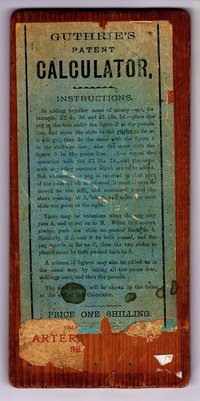 GUTHRIE'S
PATENT
CALCULATOR,
INSTRUCTIONS.
In adding together sums of money—say, for
example, £2 5s. 3d. and £3 10s. 7d.—place the
peg in the hole under the figure 2 in the pounds
line, and move the slide to the right as far as
it will go; then do the same with the figure 5
in the shillings line; also the same with the
figure 3 in the pence line. Now repeat the
operation with the £3 10s. 7d., and the same
with any other amounts which are to be added.
moved to the left, and continued round the
short opening at A,
slide one point to the right.
There may be occasions when the peg may
pass A, and travel on to B. When this occurs
always push the slide
Similarly, if A and B be both passed, and the
peg travels as far as C, then the two slides so
passed must be both pushed back to B.
A column of figures may also be added as in
the usual way, by taking all the pence first,
shillings next, and then the pounds.
The will be shown in the holes
at the of the Calculator.
PRICE ONE SHILLING.
ARTER